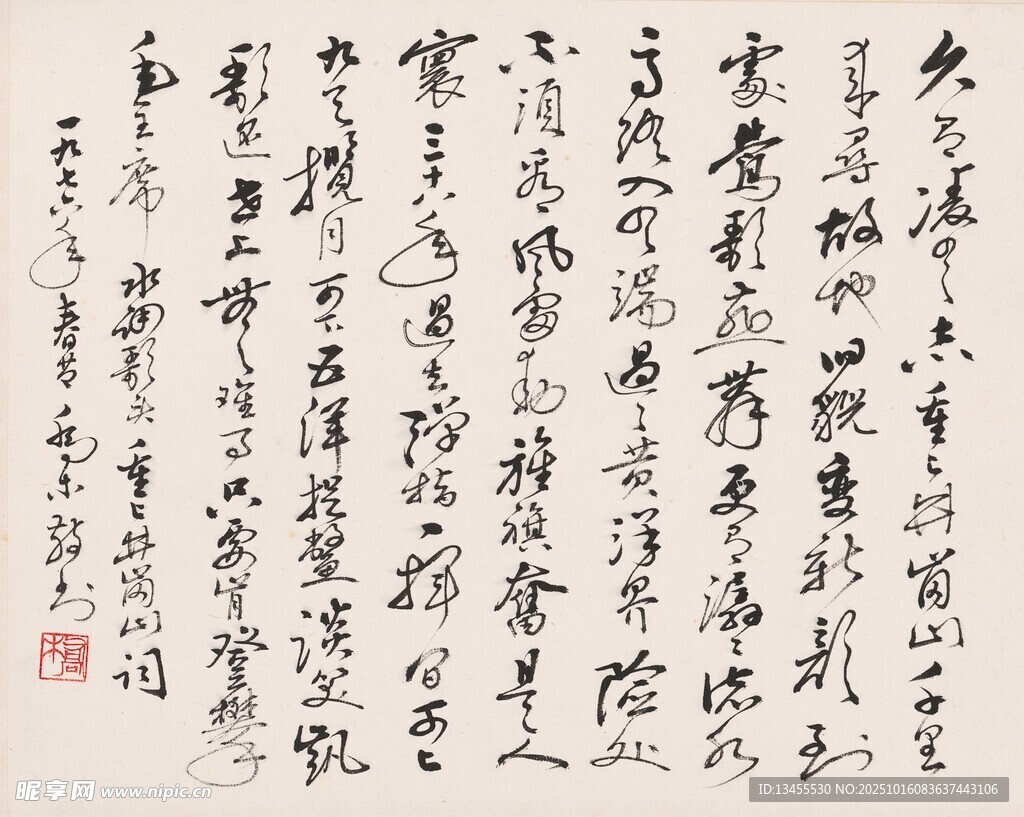 久有凌云志重上井岗山千里
来寻故地旧貌变新颜到
處莺歌燕舞更有潺潺流水
高路入云端過了黄洋界險处
不須看风雷動旌旗奮是人
寰三十八年過去弹指一揮间可上
九天攬月可下五洋捉鳖談笑凯
歌还世上無难事只要肯登攀
毛主席 水调歌头重上井岗山词
一九七六年春节 乔木敬书
喬木
昵享网 www.nipic.cn
ID:13455530 NO:20251016083637443106